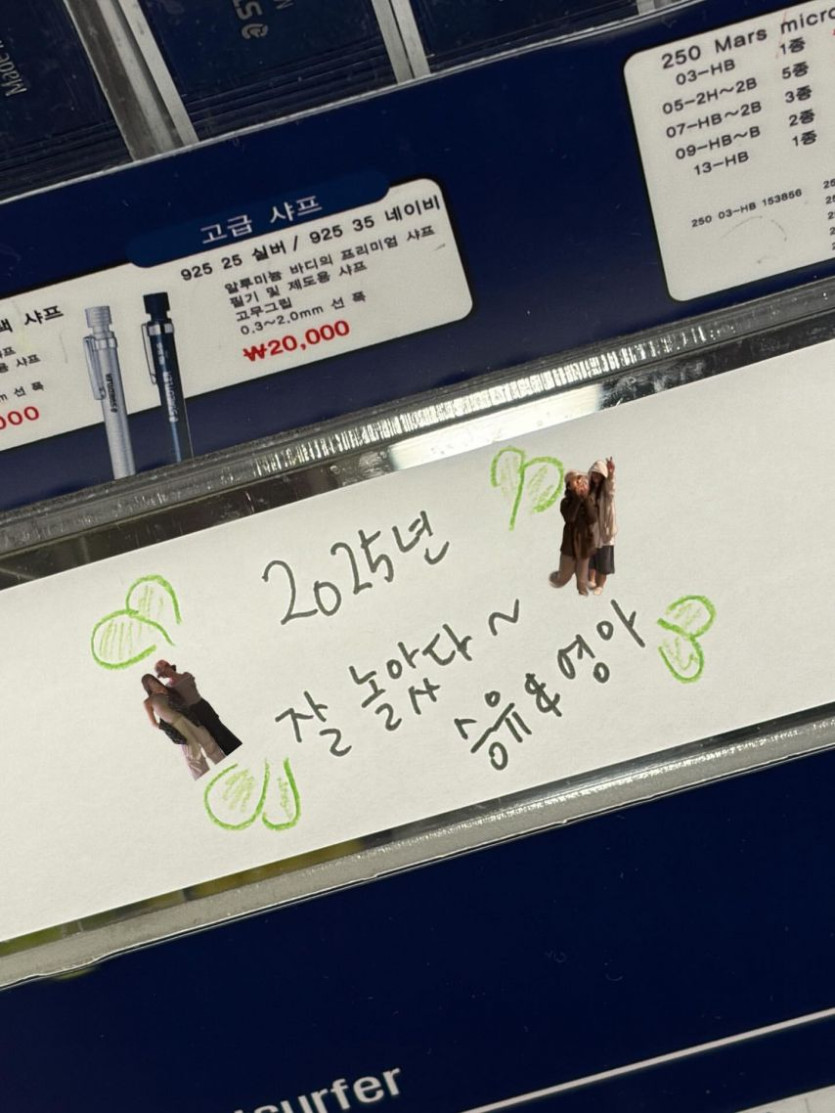 250 Mars micro
03-HB 1종
05-2H~2B 5종
07-HB~2B 3종
09-HB~B 2종
13-HB 1종
250 03-HB 153856
고급 샤프
925 25 실버 / 925 35 네이비
알루미늄 바디의 프리미엄 샤프
필기 및 제도용 샤프
고무그립
0.3~2.0mm 선 폭
₩20,000
샤프
2025년
잘 놀았다~
승유&영아
surfer